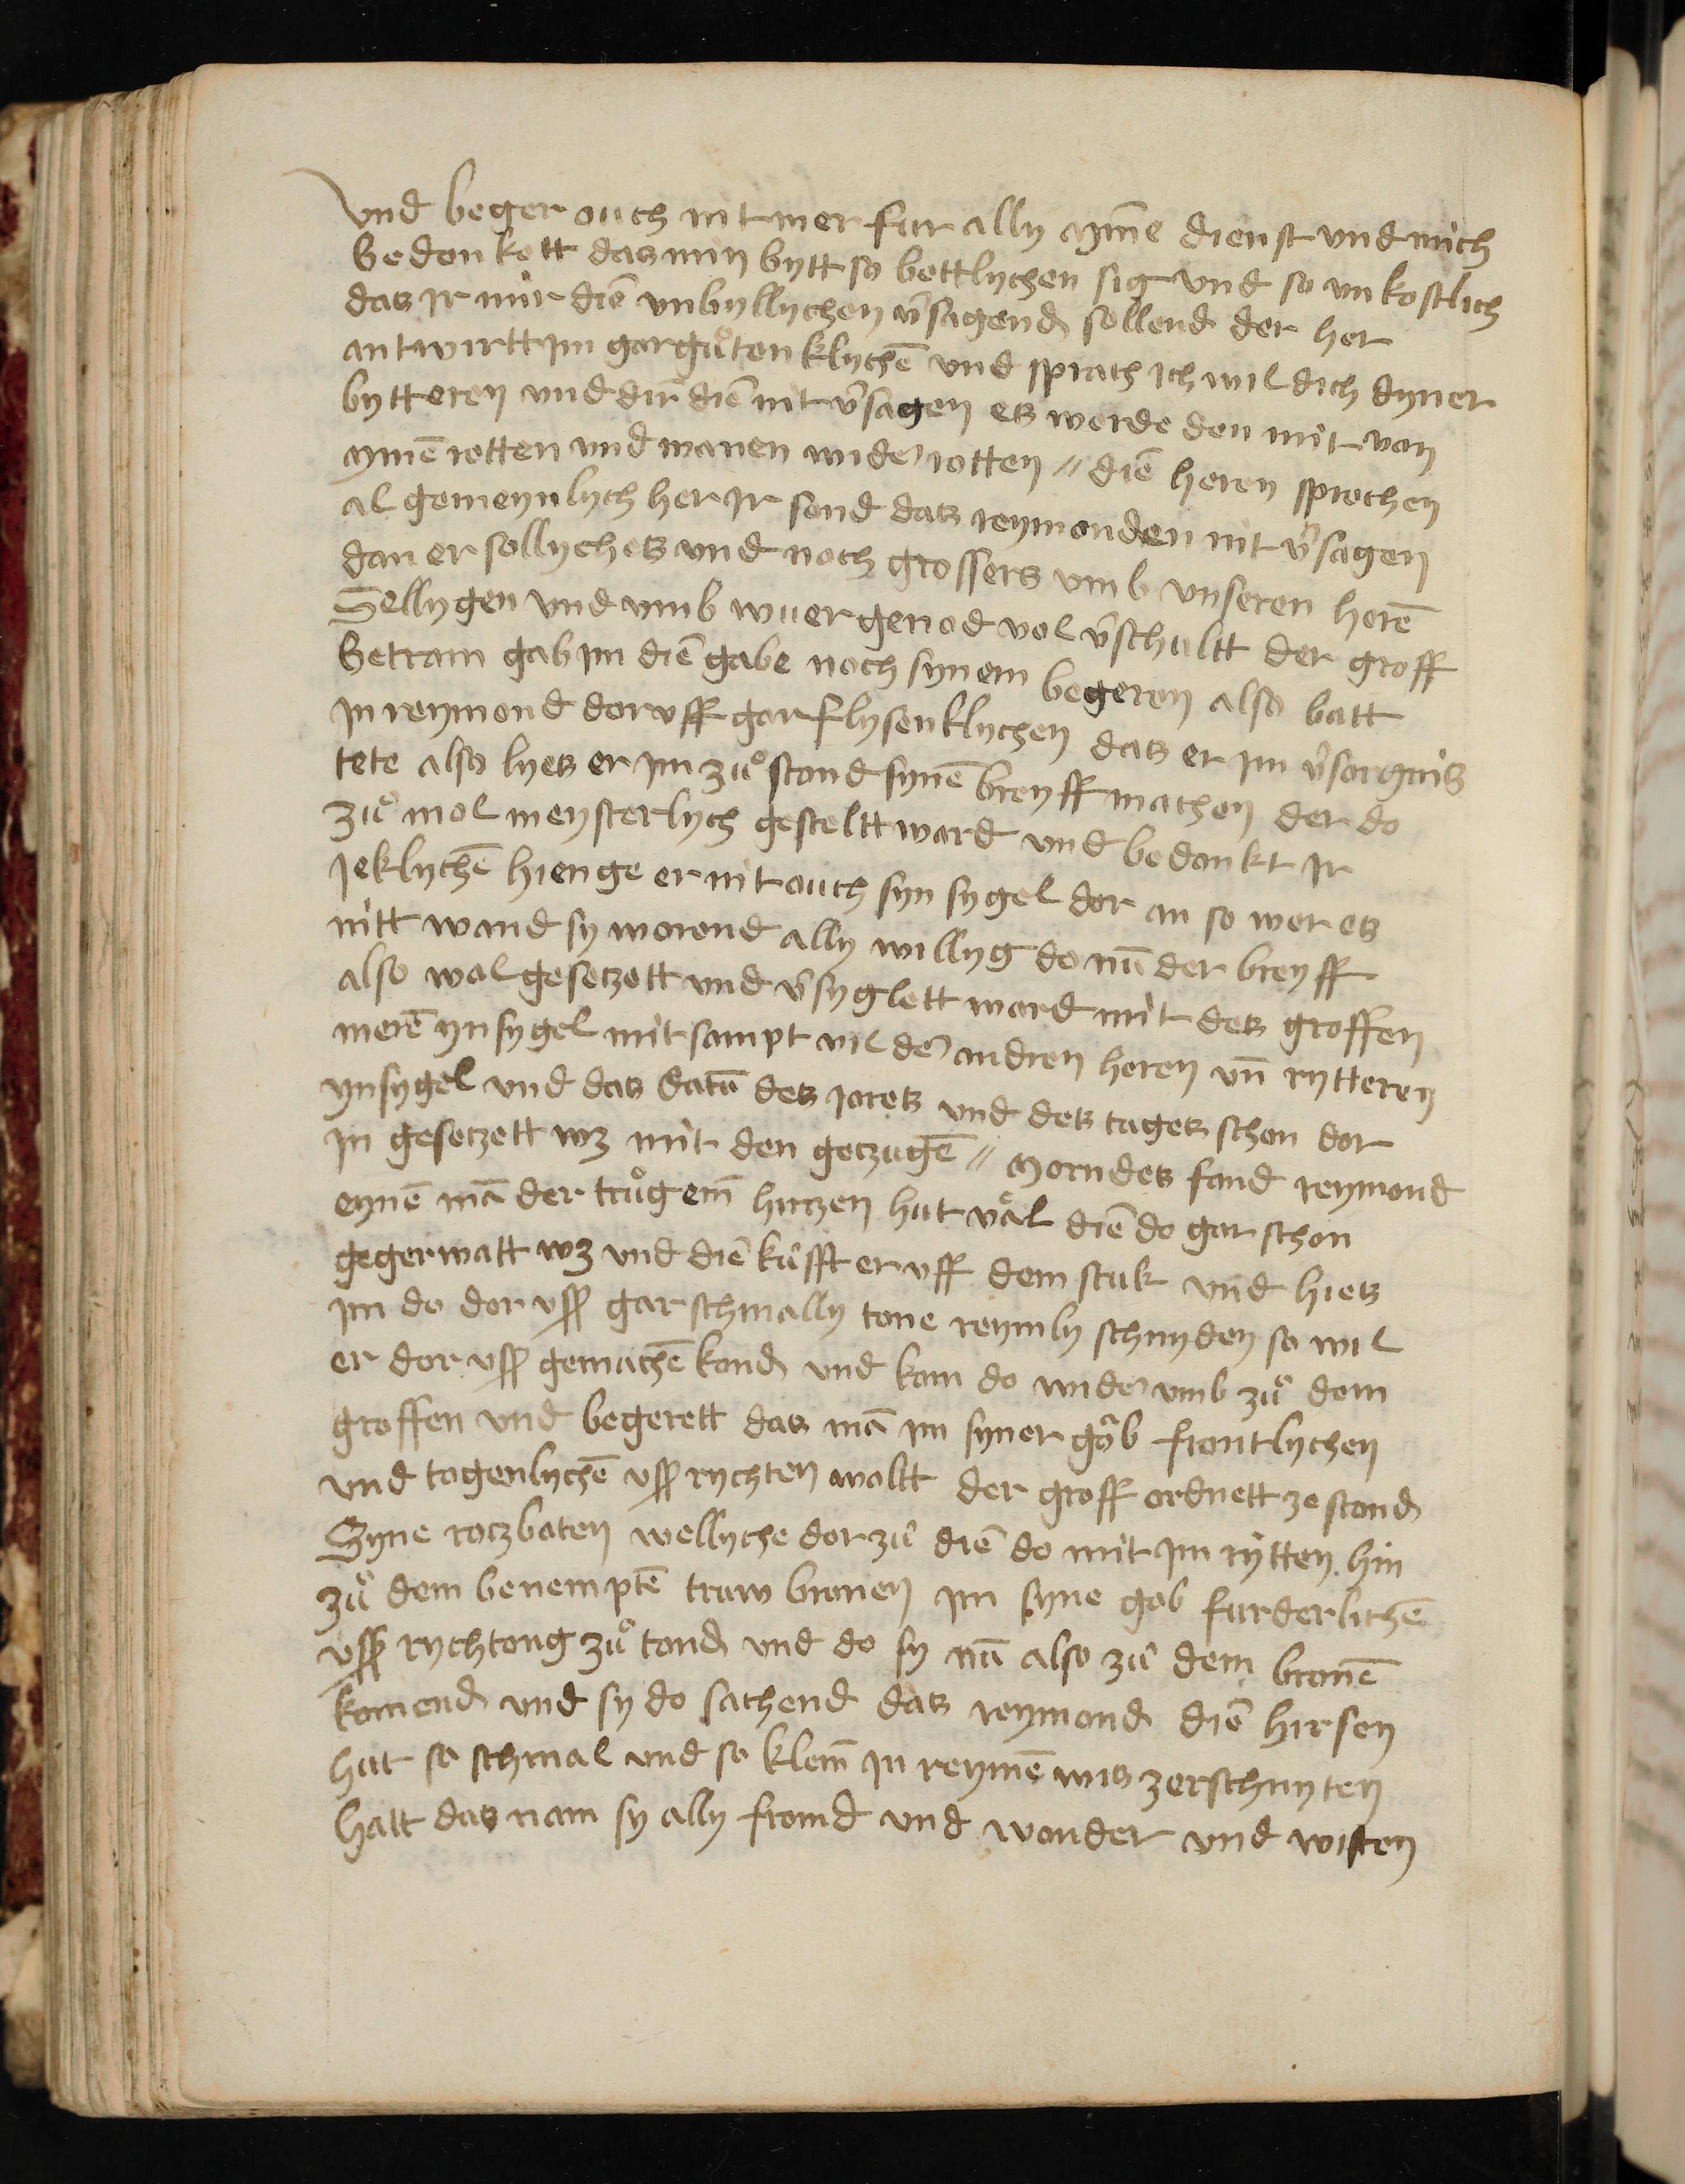 vnd beger ouch nit mer fur ally myne dienst vnd mich
bedonkett das min bytt so bettlychen sig vnd so vnkostlich
das ir mir die vnbyllychen v̄sagend sollend der her
antwirtt im gar gůtenklychē vnd sprach ich wil dich dyner
bytt eren vnd dir die nit v̄sagen es werde den mir von
mynē retten vnd manen wider rotten // die heren sprochen
al gemeynlych her ir sond das reymonden nit v̄sagen
dan er sollyches vnd noch grossers vmb vnseren herē
Sellygen vnd vmb wuer genod vol v̄schultt der groff
betram gab im die gabe noch synem begeren also batt
in reymond doruff gar flysenklychen das er im v̄sorgnis
tete also lyes er im zů stond synē breyff machen der do
zů mol meysterlych gesteltt ward vnd bedonkt ir
jeklychē hienge er nit ouch syn sygel dor an so wer es
nitt wand sy worend ally willyg do nū der breyff
also wol gesetzett vnd v̄syglett ward mit des groffen
merē ynsygel mit sampt vil der andren heren vn̄ rytteren
ynsygel vnd das datū des jores vnd des tages schon dor
in gesetzett wz mit den getzugē // Morndes fand reymond
eynē mā der trůg em̄ hirtzen hut väl die do gar schon
gegerwatt wz vnd die kůfft er vff dem stuk vnd hies
im do dor vss gar schmally tone reymly schnyden so wil
er dor vss gemachē kond vnd kam do wider vmb zů dem
groffen vnd begerett das mā im syner gob frontlychen
vnd togenlychē vss rychten woltt der groff ordnett ze stond
Syne rotzbaten wellyche dor zů die do mit im rytten hin
zů dem benemptē turw bronen im syne gob furderlichē
vss rychtong zů tond vnd do sy nū also zů dem bronē
komend vnd sy do sachend das reymond die hirsen
hut so schmal vnd so klein in reymē wis zerschnyten
hatt das nam sy ally fromd vnd wonder vnd wisten